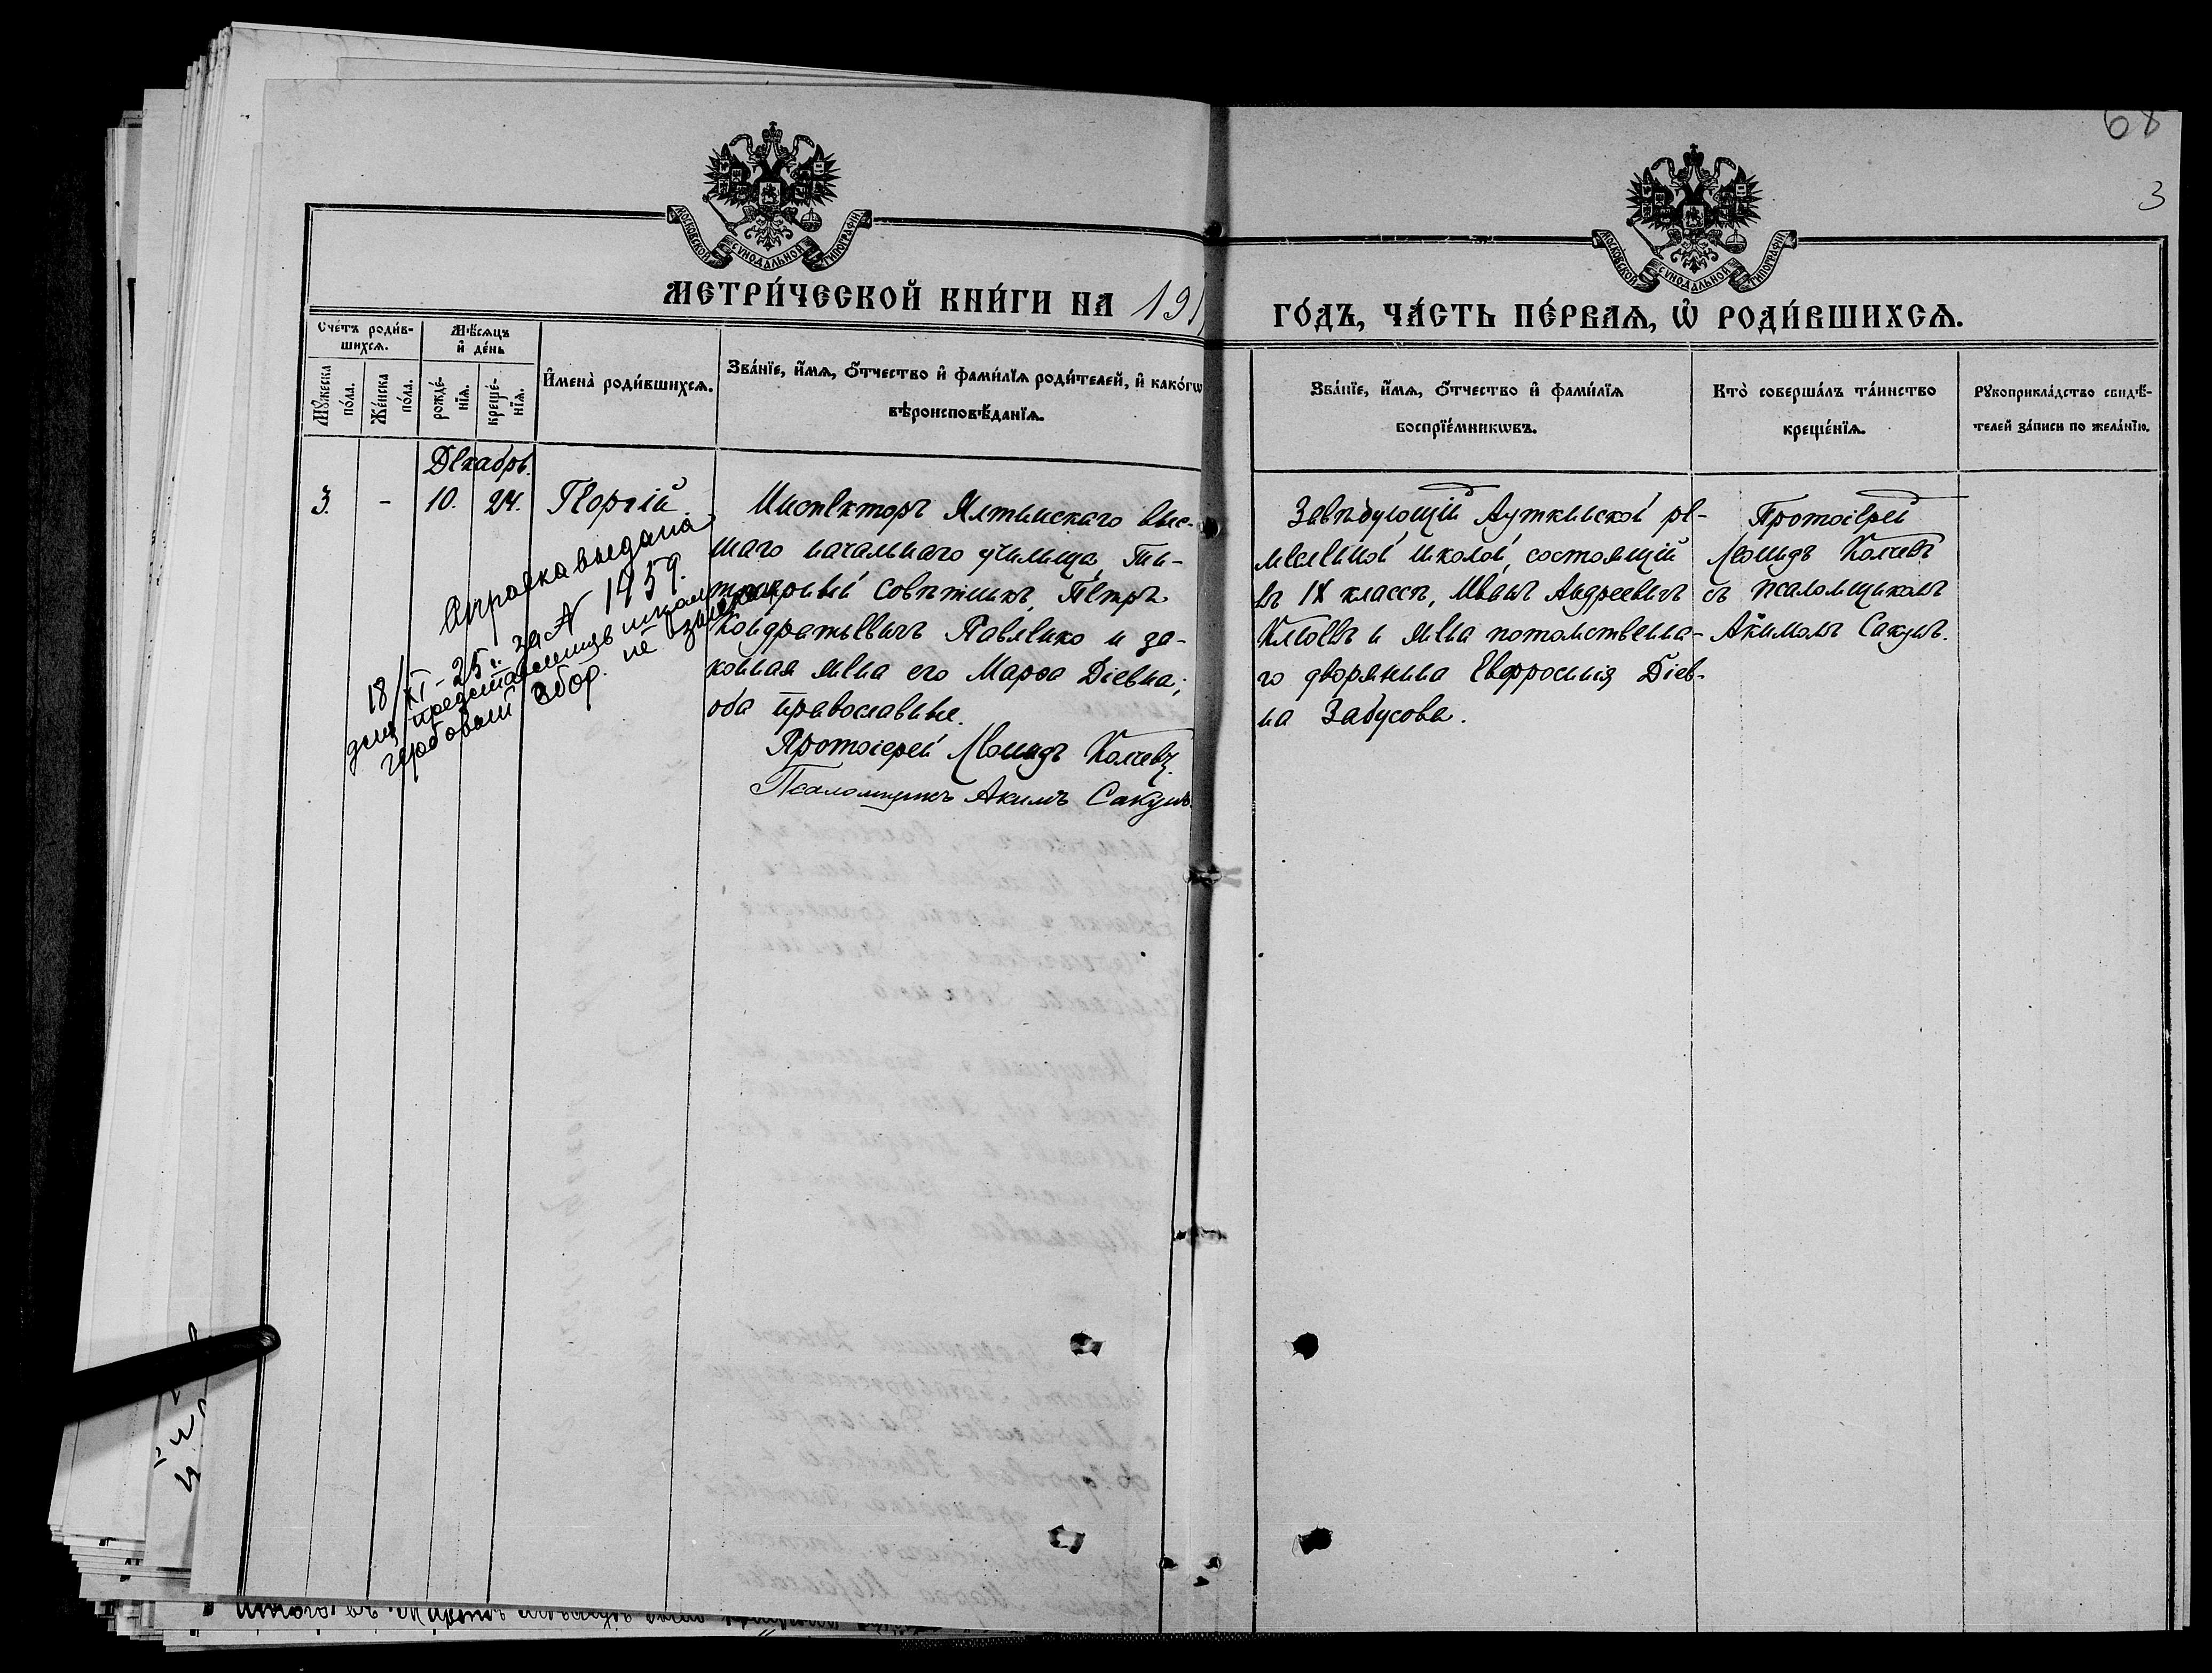 68
3
МОСКОВСКОЙ СѴНОДАЛЬНОЙ ТИПОГРАФІИ
МОСКОВСКОЙ СѴНОДАЛЬНОЙ ТИПОГРАФІИ
МЕТРИ́ЧЕСКОЙ КНИ́ГИ НА 191
ГО́ДЪ, ЧА́СТЬ ПЕ́РВАѦ, Ѡ҆ РОДИ́ВШИХСѦ.
Сче́тъ роди́в-
шихсѧ.
Мꙋ́жеска
по́ла.
Же́нска
по́ла.
Мѣ́сѧцъ
и҆ де́нь
рожде́-
нїѧ.
креще́-
нїѧ.
И҆мена̀ роди́вшихсѧ.
Зва́нїе, и҆́мѧ, ѻ҆́тчество и҆ фами́лїѧ роди́телей, и҆ како́гѡ
вѣроисповѣ́данїѧ.
Зва́нїе, и҆́мѧ, ѻ҆́тчество и҆ фами́лїѧ
воспрїе́мникѡвъ.
Кто̀ соверша́лъ та́инство
креще́нїѧ.
Рꙋкоприкла́дство свидѣ́-
телей за́писи по жела́нїю.
Декабрь.
3. - 10. 24. Георгій
Инспекторъ Ялтинскаго выс-
шаго начальнаго училища, Ти-
тулярный Совѣтникъ, Петръ
Кондратьевичъ Павленко и за-
конная жена его Марѳа Діевна;
оба православные.
Протоіерей Леонидъ Колчевъ.
Псаломщикъ Акимъ Сакунъ.
Завѣдующій Ауткинской ре-
месленной школой, состоящій
въ IX классѣ, Иванъ Андреевичъ
и жена потомственна-
го дворянина Евфросинія Діев-
на Забусова.
Протоіерей
Леонидъ Колчевъ
съ псаломщикомъ
Акимомъ Сакунъ.
Справка выдана
18/XI-25 г. за № 1459.
для представления в школу
гербовый сбор. не взимается